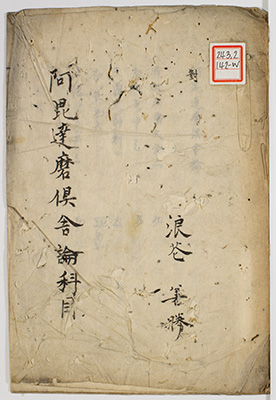 243.2
142-W
對
浪花 義勝
阿毘達磨倶舎論科目